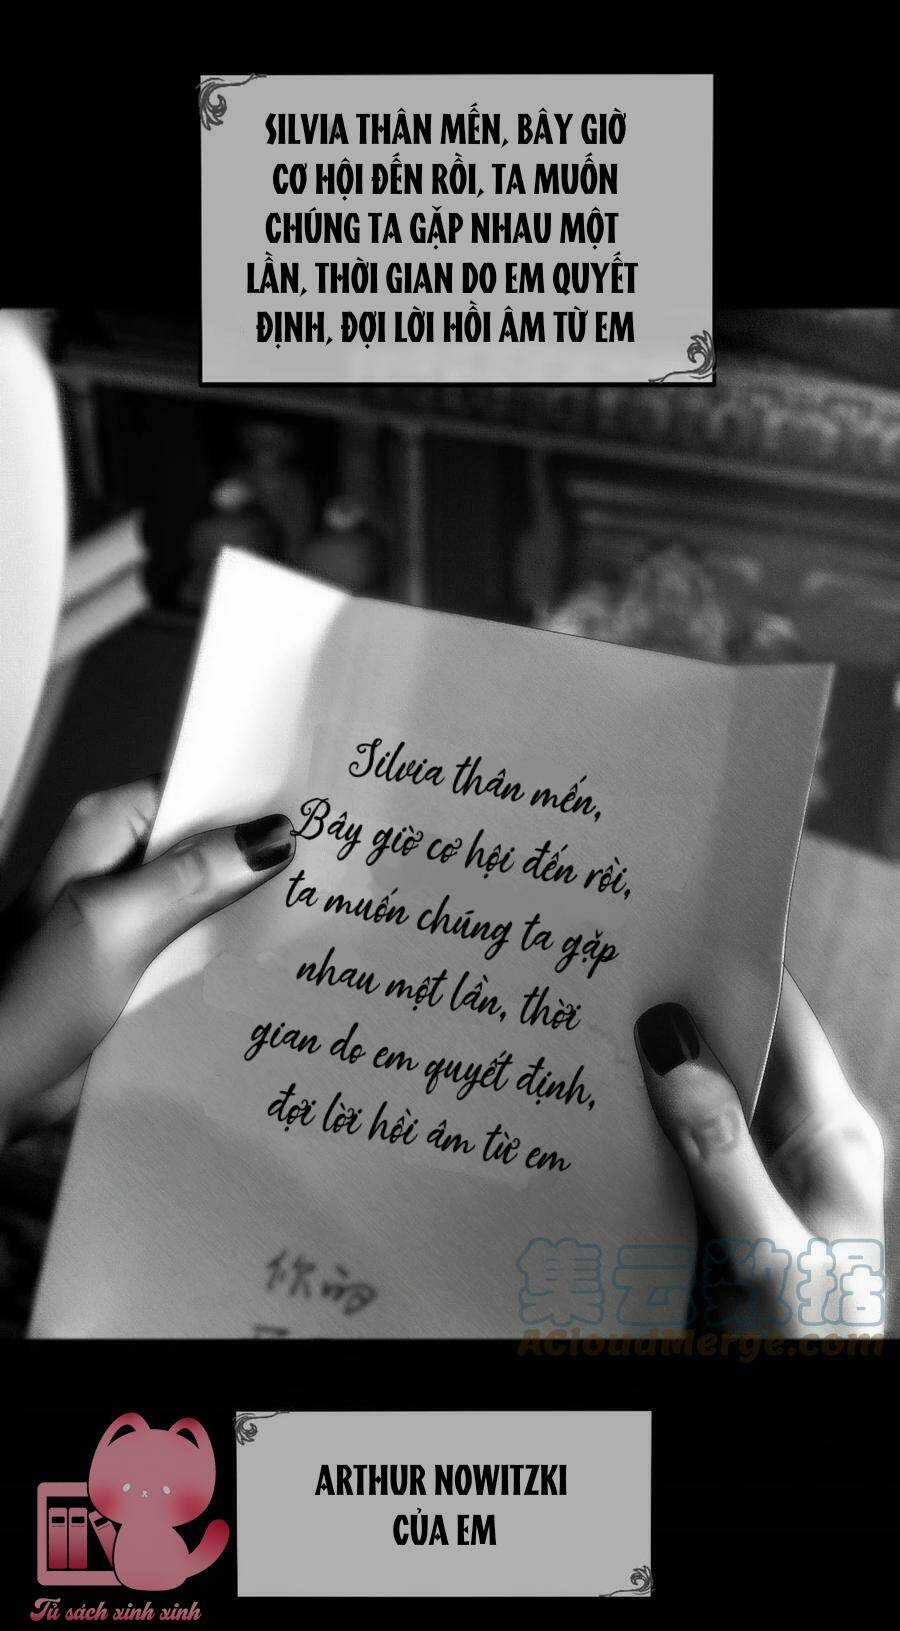 SILVIA THÂN MẾN, BÂY GIỜ
CƠ HỘI ĐẾN RỒI, TA MUỐN
CHÚNG TA GẶP NHAU MỘT
LẦN, THỜI GIAN DO EM QUYẾT
ĐỊNH, ĐỢI LỜI HỒI ÂM TỪ EM
Silvia thân mến,
Bây giờ cơ hội đến rồi,
ta muốn chúng ta gặp
nhau một lần, thời
gian do em quyết định,
đợi lời hồi âm từ em
你的
集云数据
ACloudMerge.com
ARTHUR NOWITZKI
CỦA EM
Tủ sách xinh xinh